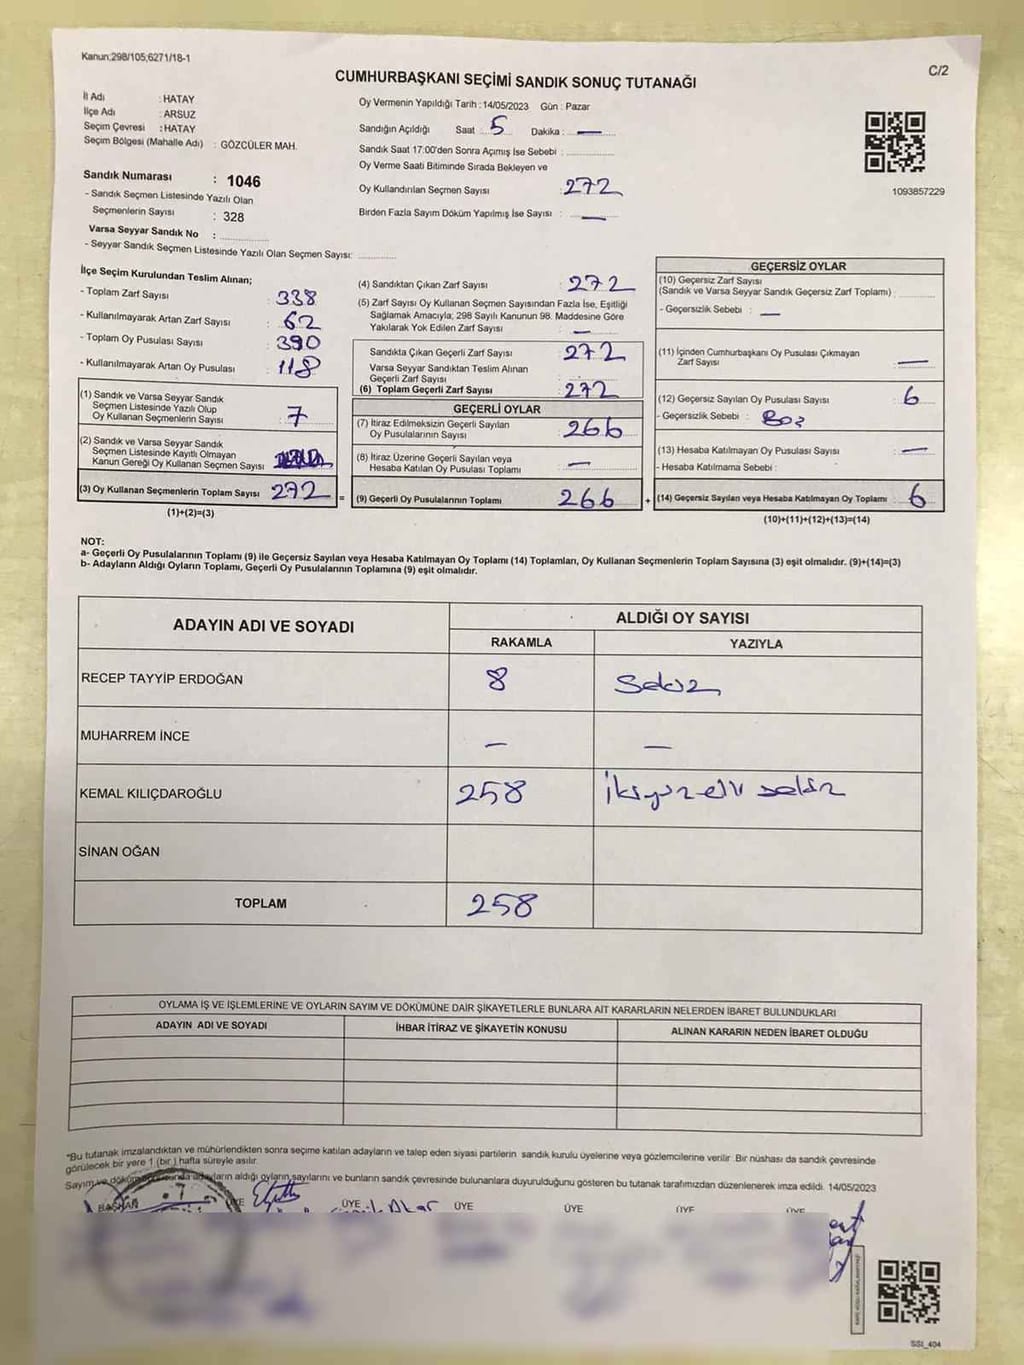 Kanun:298/105;6271/18-1
C/2
CUMHURBAŞKANI SEÇİMİ SANDIK SONUÇ TUTANAĞI
İl Adı : HATAY
İlçe Adı : ARSUZ
Seçim Çevresi : HATAY
Seçim Bölgesi (Mahalle Adı) : GÖZCÜLER MAH.
Sandık Numarası : 1046
- Sandık Seçmen Listesinde Yazılı Olan
Seçmenlerin Sayısı : 328
Varsa Seyyar Sandık No :
- Seyyar Sandık Seçmen Listesinde Yazılı Olan Seçmen Sayısı:
Oy Vermenin Yapıldığı Tarih : 14/05/2023 Gün : Pazar
Sandığın Açıldığı Saat : 5 Dakika : —
Sandık Saat 17:00'den Sonra Açımış İse Sebebi :
Oy Verme Saati Bitiminde Sırada Bekleyen ve
Oy Kullandırılan Seçmen Sayısı : 272
Birden Fazla Sayım Döküm Yapılmış İse Sayısı : —
1093857229
İlçe Seçim Kurulundan Teslim Alınan;
- Toplam Zarf Sayısı : 338
- Kullanılmayarak Artan Zarf Sayısı : 62
- Toplam Oy Pusulası Sayısı : 390
- Kullanılmayarak Artan Oy Pusulası : 118
(1) Sandık ve Varsa Seyyar Sandık
Seçmen Listesinde Yazılı Olup
Oy Kullanan Seçmenlerin Sayısı : 7
(2) Sandık ve Varsa Seyyar Sandık
Seçmen Listesinde Kayıtlı Olmayan
Kanun Gereği Oy Kullanan Seçmen Sayısı
(3) Oy Kullanan Seçmenlerin Toplam Sayısı : 272
(1)+(2)=(3)
(4) Sandıktan Çıkan Zarf Sayısı : 272
(5) Zarf Sayısı Oy Kullanan Seçmen Sayısından Fazla İse, Eşitliği
Sağlamak Amacıyla; 298 Sayılı Kanunun 98. Maddesine Göre
Yakılarak Yok Edilen Zarf Sayısı : —
Sandıkta Çıkan Geçerli Zarf Sayısı : 272
Varsa Seyyar Sandıktan Teslim Alınan
Geçerli Zarf Sayısı :
(6) Toplam Geçerli Zarf Sayısı : 272
GEÇERLİ OYLAR
(7) İtiraz Edilmeksizin Geçerli Sayılan
Oy Pusulalarının Sayısı : 266
(8) İtiraz Üzerine Geçerli Sayılan veya
Hesaba Katılan Oy Pusulası Toplamı : —
= (9) Geçerli Oy Pusulalarının Toplamı : 266 +
GEÇERSİZ OYLAR
(10) Geçersiz Zarf Sayısı
(Sandık ve Varsa Seyyar Sandık Geçersiz Zarf Toplamı) :
- Geçersizlik Sebebi : —
(11) İçinden Cumhurbaşkanı Oy Pusulası Çıkmayan
Zarf Sayısı : —
(12) Geçersiz Sayılan Oy Pusulası Sayısı : 6
- Geçersizlik Sebebi :
(13) Hesaba Katılmayan Oy Pusulası Sayısı : —
- Hesaba Katılmama Sebebi :
(14) Geçersiz Sayılan veya Hesaba Katılmayan Oy Toplamı : 6
(10)+(11)+(12)+(13)=(14)
NOT:
a- Geçerli Oy Pusulalarının Toplamı (9) ile Geçersiz Sayılan veya Hesaba Katılmayan Oy Toplamı (14) Toplamları, Oy Kullanan Seçmenlerin Toplam Sayısına (3) eşit olmalıdır. (9)+(14)=(3)
b- Adayların Aldığı Oyların Toplamı, Geçerli Oy Pusulalarının Toplamına (9) eşit olmalıdır.
ADAYIN ADI VE SOYADI
ALDIĞI OY SAYISI
RAKAMLA YAZIYLA
RECEP TAYYİP ERDOĞAN 8 Sekiz
MUHARREM İNCE — —
KEMAL KILIÇDAROĞLU 258 İkiyüz elli sekiz
SİNAN OĞAN
TOPLAM 258
OYLAMA İŞ VE İŞLEMLERİNE VE OYLARIN SAYIM VE DÖKÜMÜNE DAİR ŞİKAYETLERLE BUNLARA AİT KARARLARIN NELERDEN İBARET BULUNDUKLARI
ADAYIN ADI VE SOYADI İHBAR İTİRAZ VE ŞİKAYETİN KONUSU ALINAN KARARIN NEDEN İBARET OLDUĞU
*Bu tutanak imzalandıktan ve mühürlendikten sonra seçime katılan adayların ve talep eden siyasi partilerin sandık kurulu üyelerine veya gözlemcilerine verilir. Bir nüshası da sandık çevresinde
görülecek bir yere 1 (bir ) hafta süreyle asılır.
Sayım ve döküm sonucunda adayların aldığı oyların sayılarını ve bunların sandık çevresinde bulunanlara duyurulduğunu gösteren bu tutanak tarafımızdan düzenlenerek imza edildi. 14/05/2023
BAŞKAN ÜYE ÜYE ÜYE ÜYE ÜYE ÜYE
SSI_404